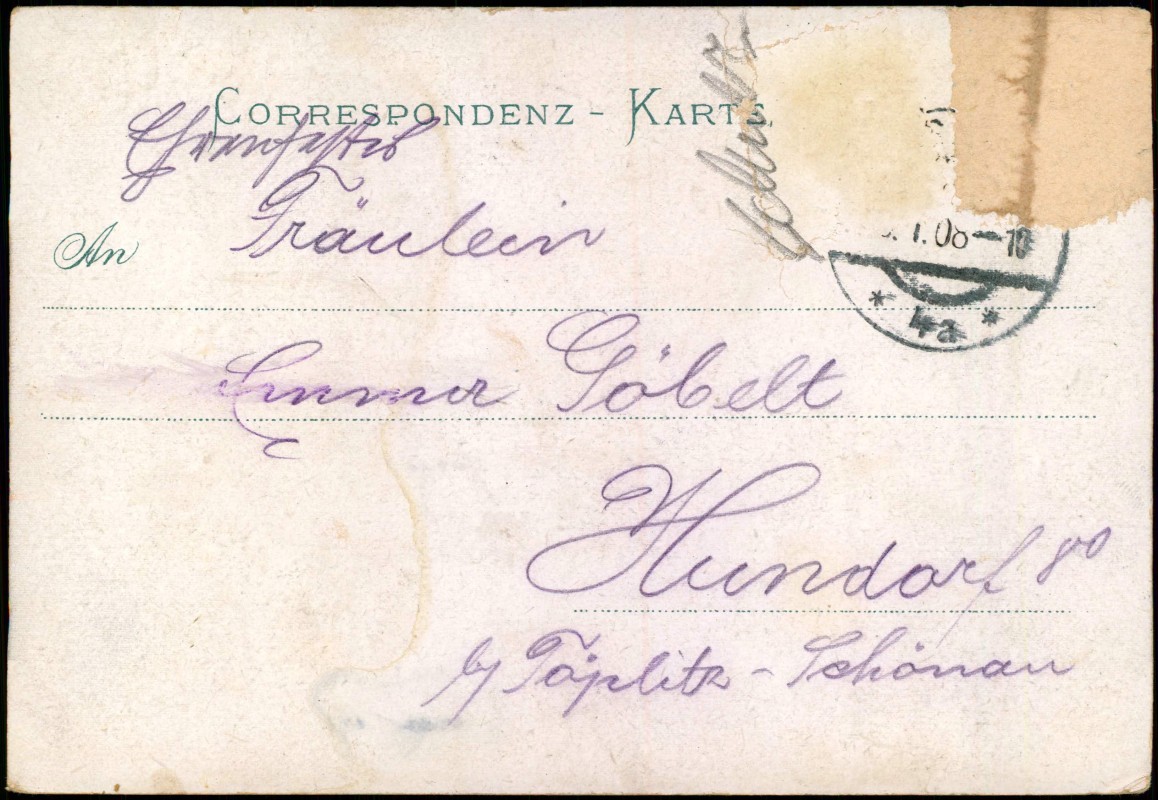 CORRESPONDENZ - KARTE.
Fräulein
An
.1.08-10
* 4a *
Emma Göbelt
Hundorf 80
b/ Töplitz - Schönau